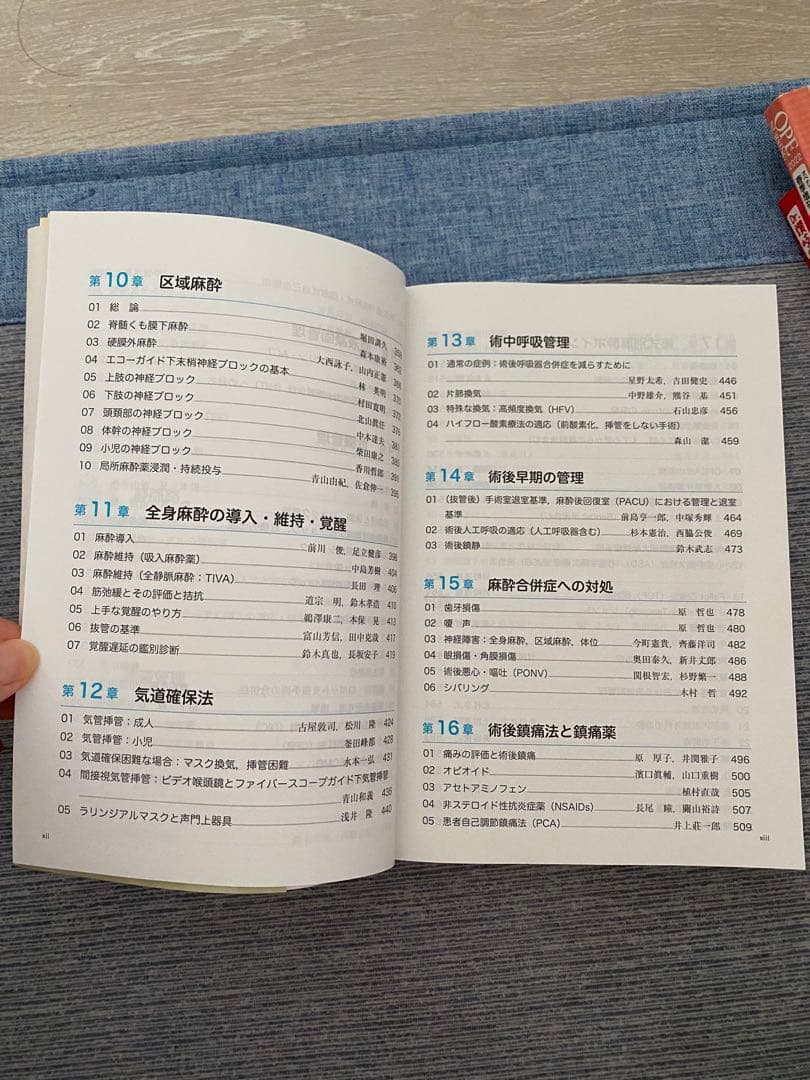 第10章 区域麻酔
01 総論 堀田訓久 359
02 脊髄くも膜下麻酔 森本康裕 362
03 硬膜外麻酔 大西詠子，山内正憲 366
04 エコーガイド下末梢神経ブロックの基本 林 英明 370
05 上肢の神経ブロック 村田寛明 373
06 下肢の神経ブロック 北山眞任 376
07 頭頸部の神経ブロック 中本達夫 381
08 体幹の神経ブロック 柴田康之 385
09 小児の神経ブロック 香川哲郎 391
10 局所麻酔薬浸潤・持続投与 青山由紀，佐倉伸一 395
第11章 全身麻酔の導入・維持・覚醒
01 麻酔導入 前川 俊，足立健彦 398
02 麻酔維持（吸入麻酔薬） 中島芳樹 404
03 麻酔維持（全静脈麻酔：TIVA） 長田 理 407
04 筋弛緩とその評価と拮抗 道宗 明，鈴木孝浩 410
05 上手な覚醒のやり方 鵜澤康二，本保 晃 413
06 抜管の基準 富山芳信，田中克哉 417
07 覚醒遅延の鑑別診断 鈴木真也，長坂安子 419
第12章 気道確保法
01 気管挿管：成人 古屋敦司，松川 隆 424
02 気管挿管：小児 釜田峰都 428
03 気道確保困難な場合：マスク換気，挿管困難 水本一弘 431
04 間接視気管挿管：ビデオ喉頭鏡とファイバースコープガイド下気管挿管
青山和義 436
05 ラリンジアルマスクと声門上器具 浅井 隆 440
xii
第13章 術中呼吸管理
01 通常の症例：術後呼吸器合併症を減らすために
星野太希，吉田健史 446
02 片肺換気 中野雄介，熊谷 基 451
03 特殊な換気：高頻度換気（HFV） 石山忠彦 456
04 ハイフロー酸素療法の適応（前酸素化，挿管をしない手術）
森山 潔 459
第14章 術後早期の管理
01 （抜管後）手術室退室基準，麻酔後回復室（PACU）における管理と退室
基準 前島亨一郎，中塚秀輝 464
02 術後人工呼吸の適応（人工呼吸器含む） 杉本憲治，西脇公俊 469
03 術後鎮静 鈴木武志 473
第15章 麻酔合併症への対処
01 歯牙損傷 原 哲也 478
02 嗄声 原 哲也 480
03 神経障害：全身麻酔，区域麻酔，体位 今町憲貴，齊藤洋司 482
04 眼損傷・角膜損傷 奥田泰久，新井丈郎 486
05 術後悪心・嘔吐（PONV） 関根智宏，杉野繁一 488
06 シバリング 木村 哲 492
第16章 術後鎮痛法と鎮痛薬
01 痛みの評価と術後鎮痛 原 厚子，井関雅子 496
02 オピオイド 濱口眞輔，山口重樹 500
03 アセトアミノフェン 植村直哉 505
04 非ステロイド性抗炎症薬（NSAIDs） 長尾 瞳，關山裕詩 507
05 患者自己調節鎮痛法（PCA） 井上莊一郎 509
xiii
OPE